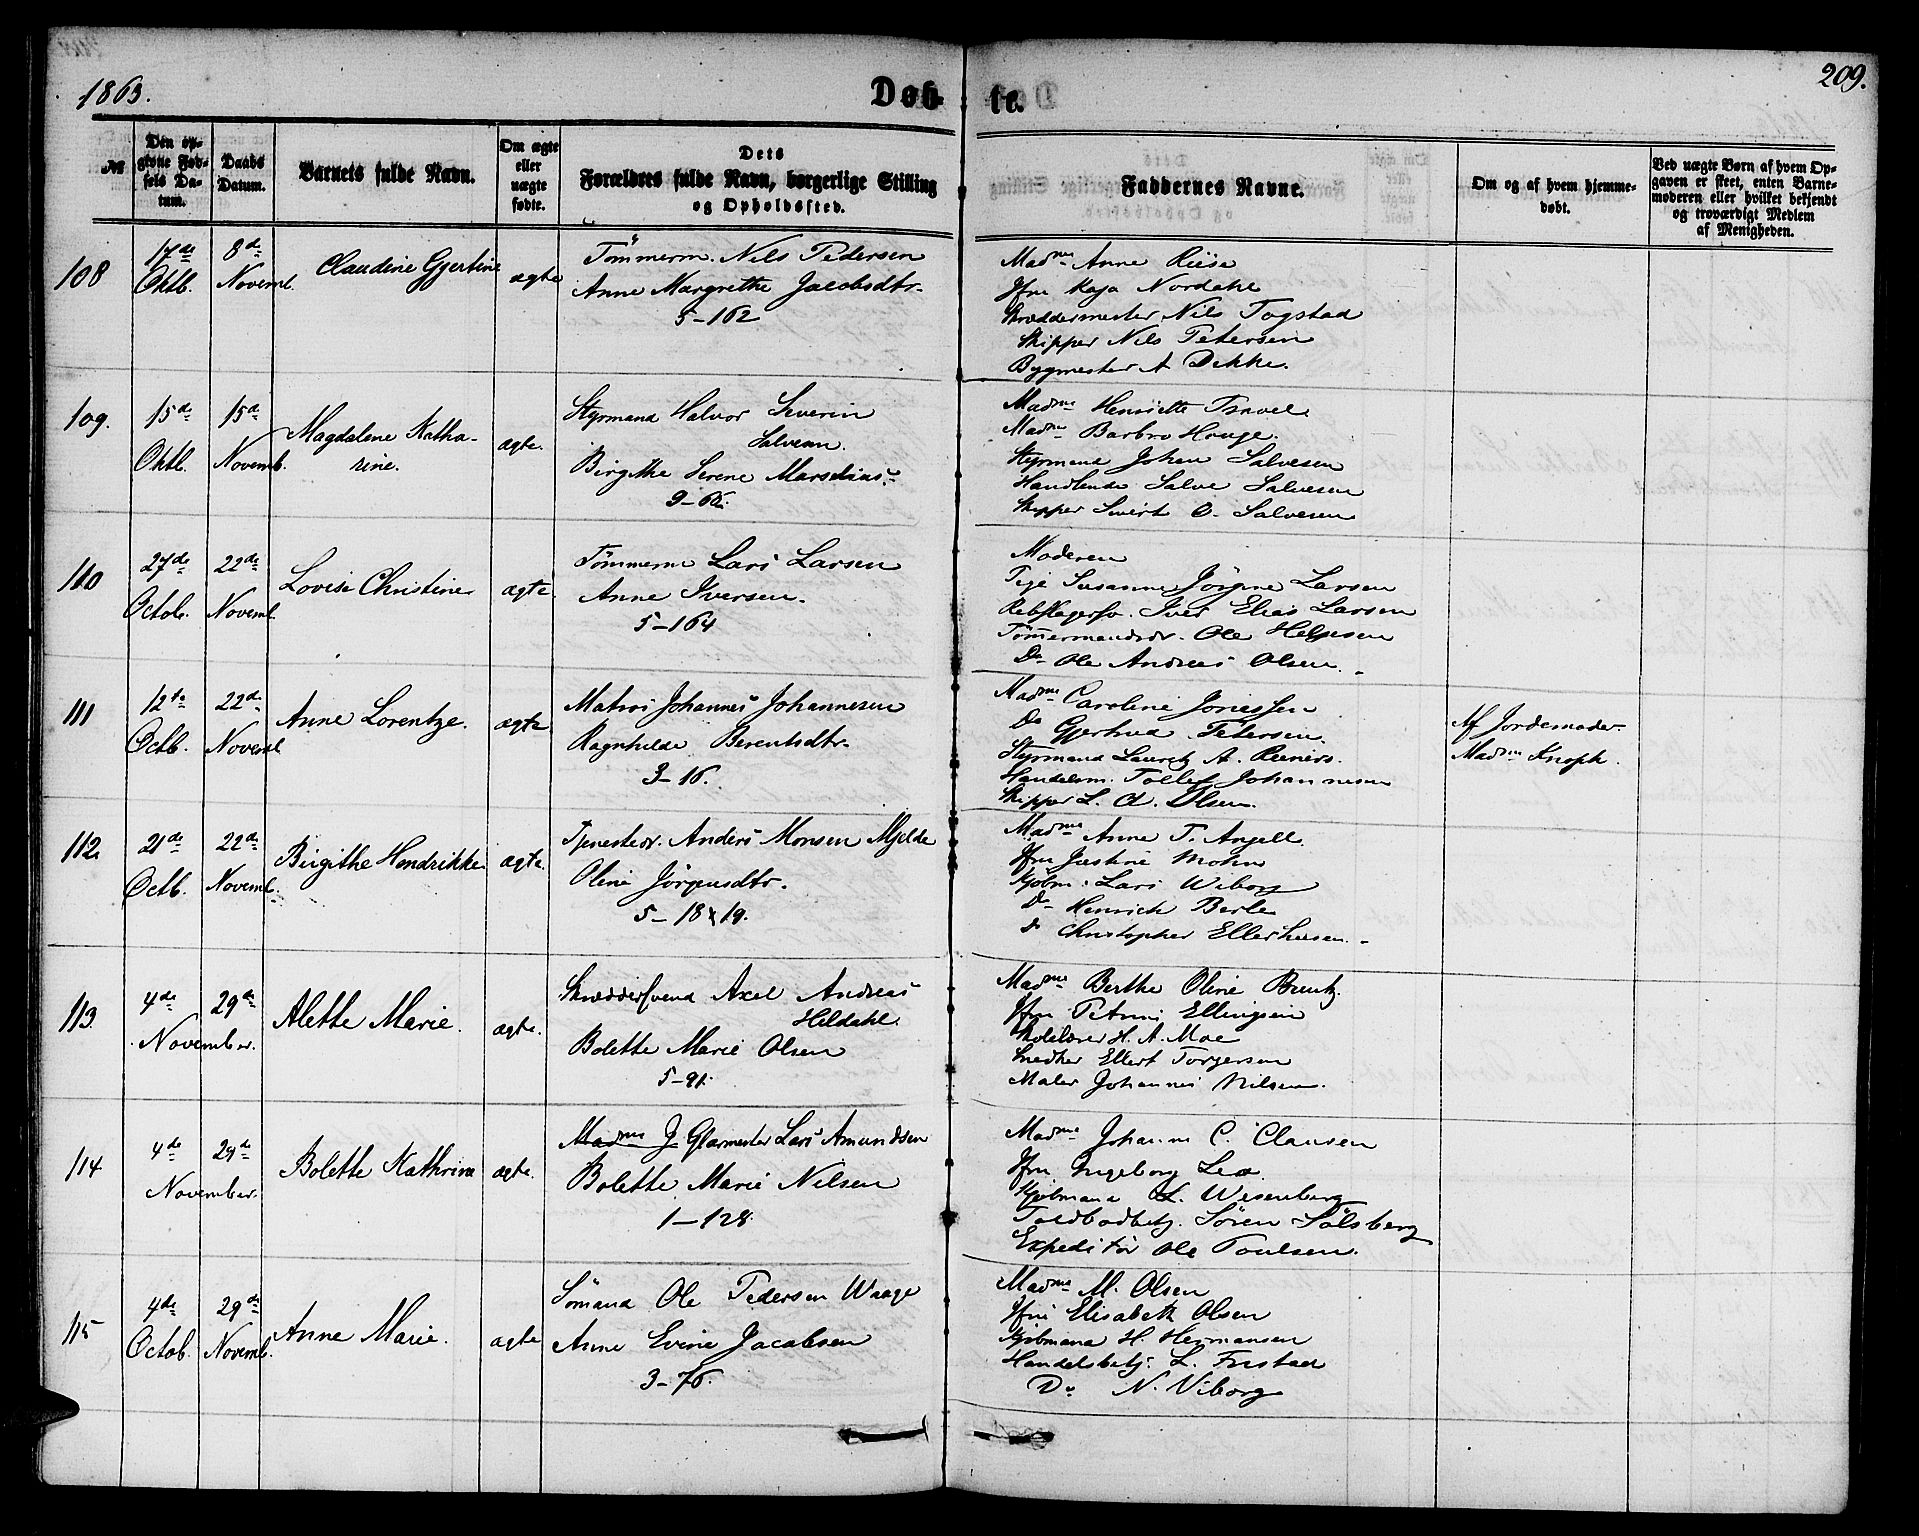 1863.
Døb-
te.
209.
№
Den op-
givne Fød-
sels Da-
tum.
Daabs
Datum.
Barnets fulde Navn.
Om ægte
eller
uægte
fødte.
Dets
Forældres fulde Navn, borgerlige Stilling
og Opholdssted.
Faddernes Navne.
Om og af hvem hjemme-
døbt.
Ved uægte Børn af hvem Op-
gaven er skeet, enten Barne-
moderen eller hvilket bekjendt
og troværdigt Medlem
af Menigheden.
108
17de
Oktb.
8de
Novemb.
Claudine Gjertine
ægte
Tømmerm. Nils Pedersen
Anne Margrethe Jacobsdtr.
5-162
Madme Anne Riise
Jfru Kaja Nordahl
Skræddermester Nils Togstad
Skipper Nils Petersen
Bygmester A Dekke.
109.
15de
Oktb.
15de
Novemb.
Magdalene Katha-
rine.
ægte.
Styrmand Halvor Severin
Salvesen.
Birgithe Serene Marselius.
9-66.
Madme Henriette
Madme Barbro Hauge.
Styrmand Johan Salvesen
Handlende Salve Salvesen
Skipper Sivert O. Salvesen
110
27de
Octob.
22de
Novemb.
Lovise Christine
ægte.
Tømmerm Lars Larsen
Anne Iversen.
5-164
Moderen
Pige Susanne Jørgine Larsen
Rebslagersv. Iver Elias Larsen
Tømmermandsdr. Ole Helgesen
Do Ole Andreas Olsen.
111
12te
Octb.
22de
Novemb.
Anne Lorentze.
ægte
Matros Johannes Johannesen
Ragnhilde Berentsdtr.
3-16.
Madme Caroline Joniessen
Do Gjertrud Petersen.
Styrmand Lauretz A. Reiners.
Handelsm. Tollef Johannesen
Skipper L. A. Olsen.
Af Jordemoder
Madme Knoph.
112
21de
Octb.
22de
Novemb.
Birgithe Hendrikke
ægte.
Tjenestedr. Anders Monsen Mjelde
Oline Jörgensdtr.
5-18 & 19.
Madme Anne T. Angell.
Jfru Justine Mohn
Kjøbm: Lars Wiborg
Do Henrich Berle
do Christopher Ellerhusen.
113.
4de
29de
November.
Alette Marie.
ægte.
Skræddersvend Axel Andreas
Heldahl.
Bolette Marie Olsen
5-91.
Madme Berthe Oline Bruntz.
Jfru Petrine Ellingsen
Skolelærer H. A. Moe
Snedker Ellert Torgersen
Maler Johannes Nilsen.
114
4de
29de
November.
Bolette Kathrine
ægte.
Madme J. Glarmester Lars Amundsen
Bolette Marie Nilsen
1-128.
Madme Johanne C. Clausen
Jfru Ingeborg Lea
Kjøbmand L. Wesenberg
Toldbodbetj. Søren Solsberg
Expeditør Ole Poulsen.
115
4de
Octob.
29de
Novemb.
Anne Marie.
ægte
Sømand Ole Pedersen Waage
Anne Evine Jacobsen
3-76.
Madme M. Olsen
Jfru Elisabeth Olsen
Kjøbmand H. Hermansen
Handelsbetj. L. Fristad
Do N. Viborg